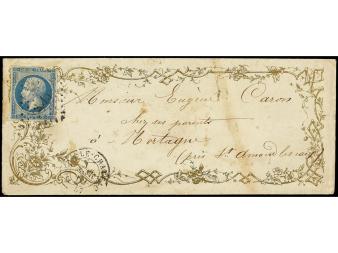 Monsieur Eugène Caron
chez ses parents
à Mortagne
(près St Amand les eaux)